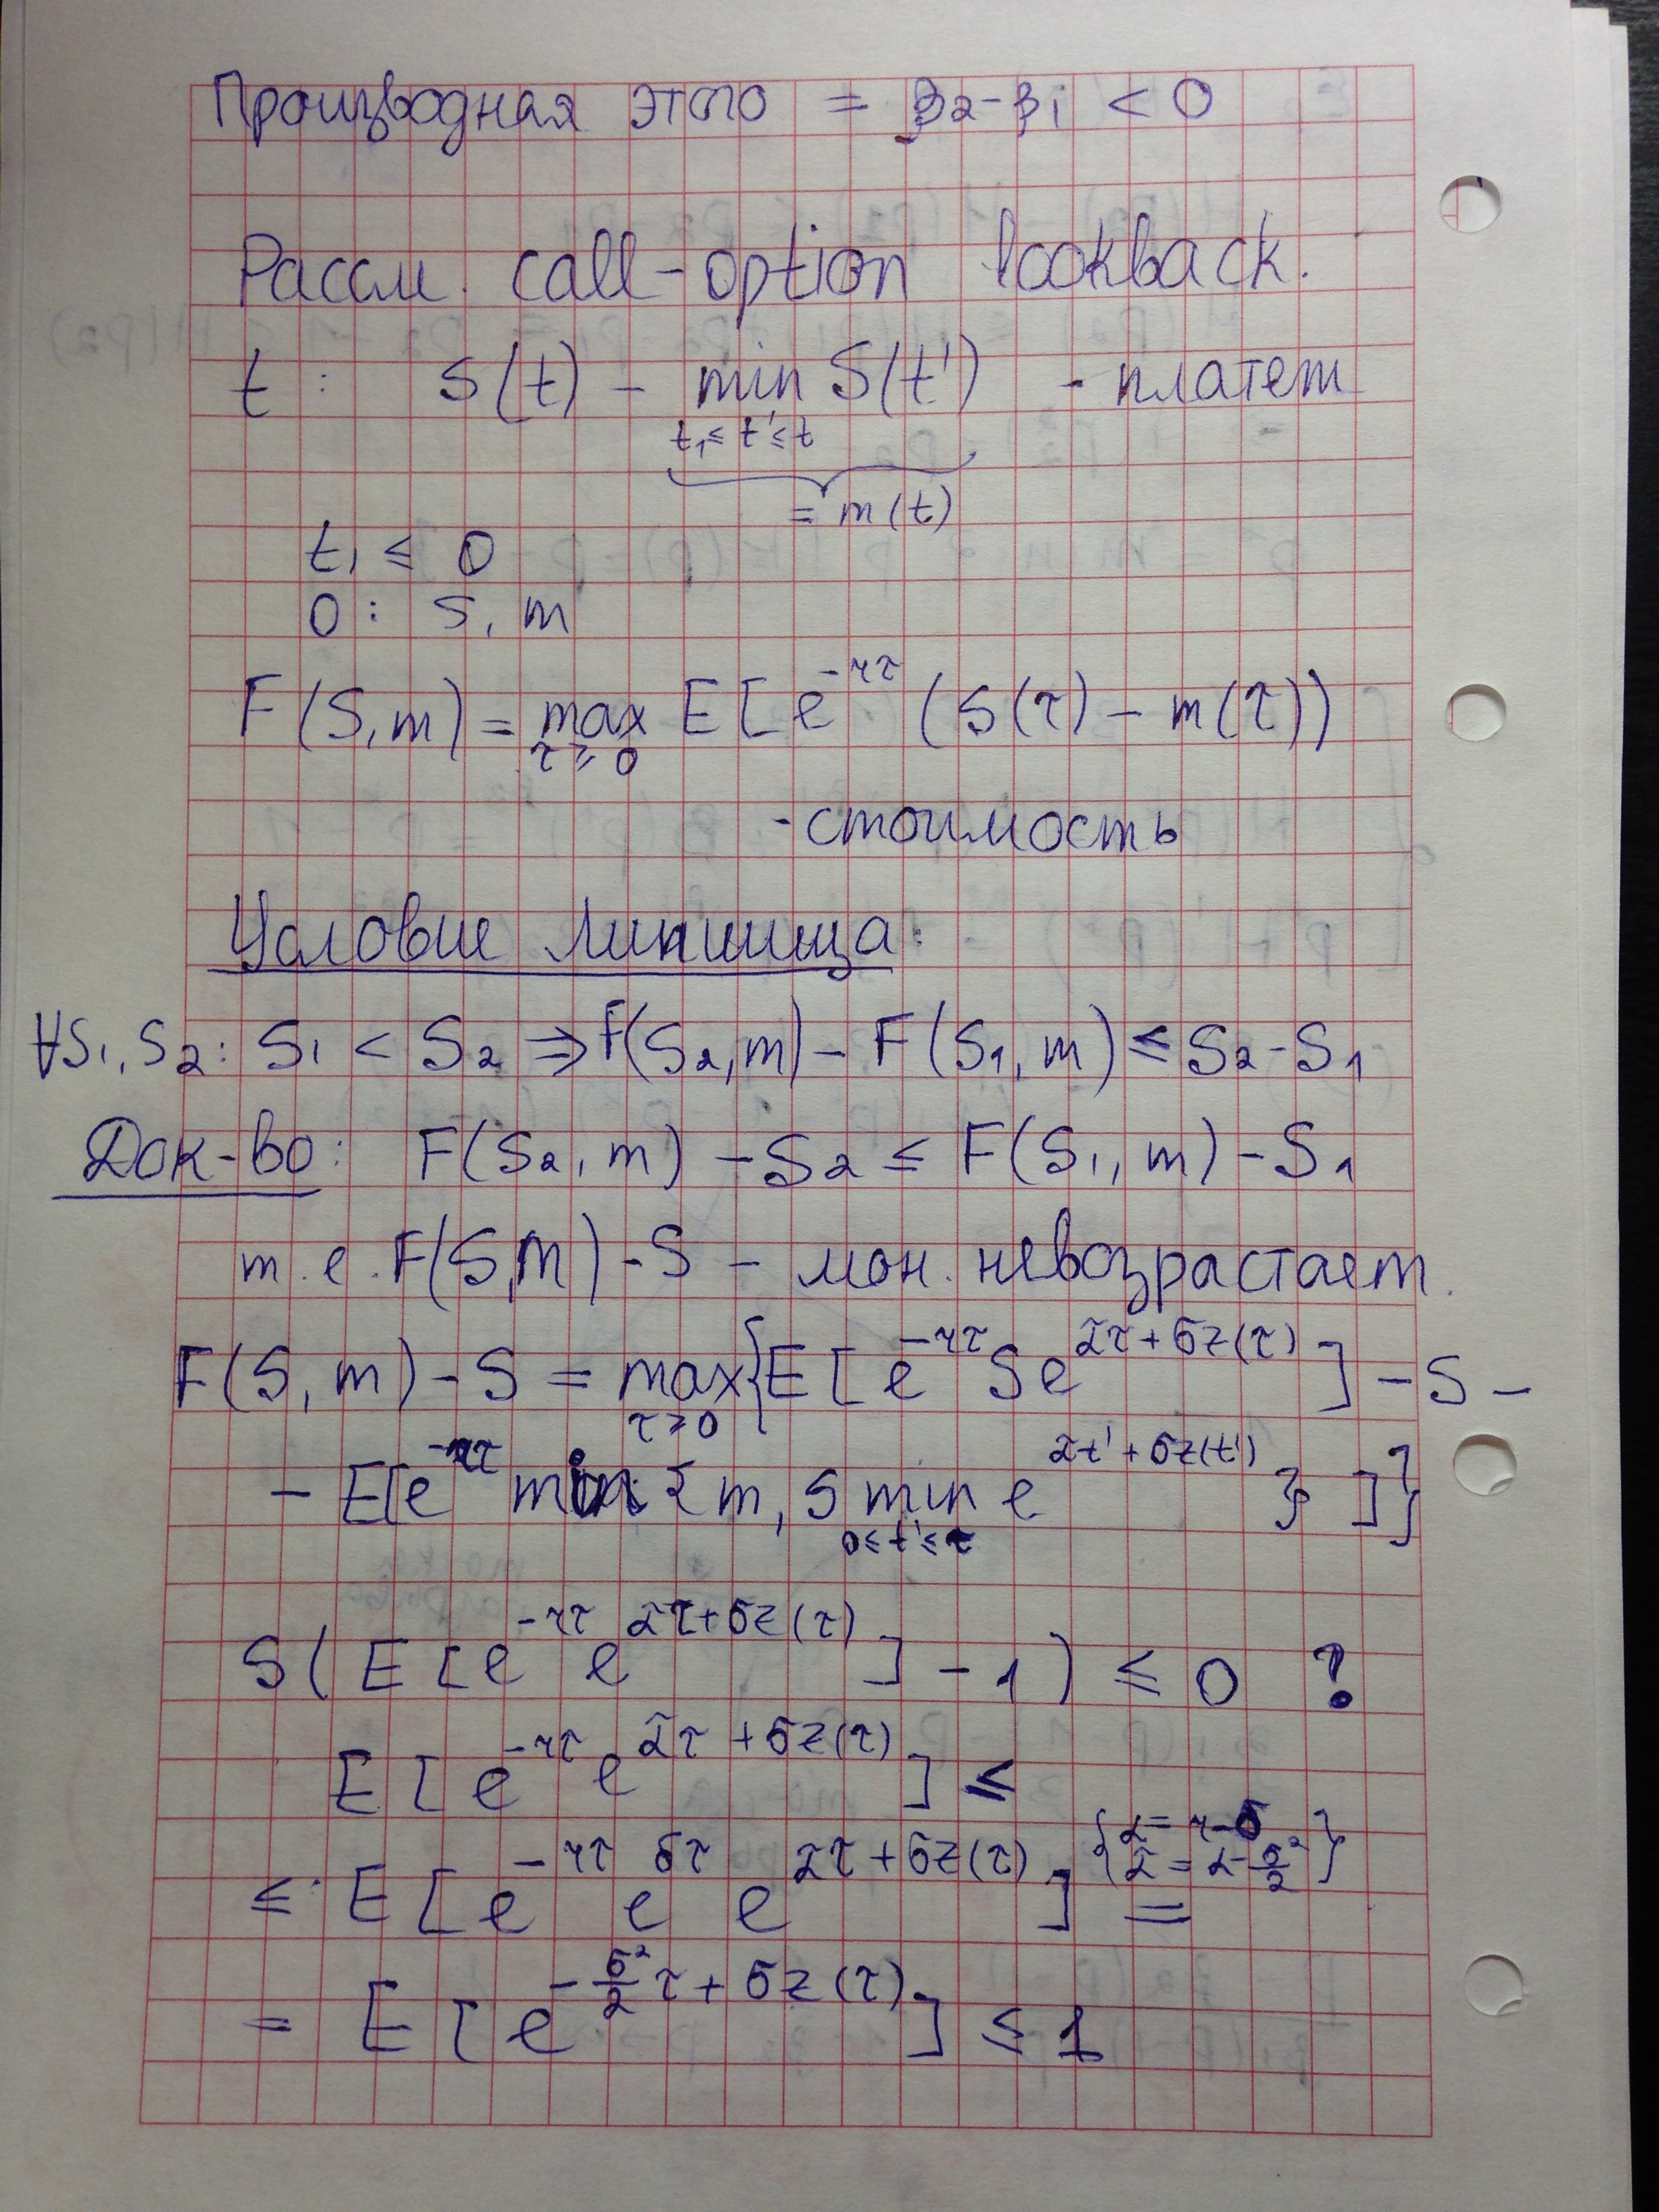 Производная этого = β₂-β₁ < 0
Рассм. call-option lookback.
t : S(t) - min S(t') - платеж
t₁ ≤ t' ≤ t
= m(t)
t₁ ≤ 0
0 : S, m
F(S,m) = max E[e^{-rτ} (S(τ) - m(τ))
τ ≥ 0
- стоимость
Условие Липшица:
∀S₁, S₂: S₁ < S₂ ⇒ F(S₂,m) - F(S₁,m) ≤ S₂-S₁
Док-во: F(S₂,m) - S₂ ≤ F(S₁,m) - S₁
т.е. F(S,m) - S - мон. невозрастает.
F(S,m) - S = max{E[e^{-rτ} S e^{α̃τ+σz(τ)}] - S -
τ ≥ 0
- E[e^{-rτ} min{m, S min e^{α̃t'+σz(t')}}]}
0 ≤ t' ≤ τ
S(E[e^{-rτ} e^{α̃τ+σz(τ)}] - 1) ≤ 0 ?
E[e^{-rτ} e^{α̃τ+σz(τ)}] ≤
{α = r-δ
≤ E[e^{-rτ} e^{δτ} e^{α̃τ+σz(τ)}] = α̃ = α-σ²/2}
= E[e^{-σ²/2 τ+σz(τ)}] ≤ 1